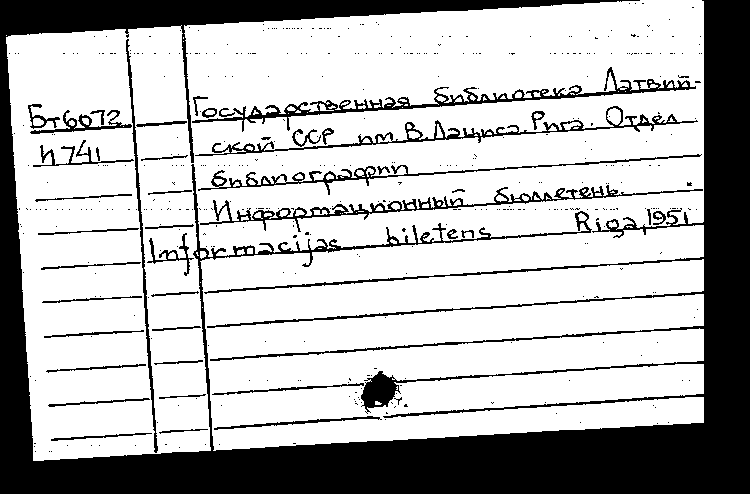 Бт6072 Государственная библиотека Латвий-
И741 ской ССР им. В. Лациса. Рига. Отдел
библиографии
Информационный бюллетень.
Informacijas biletens Riga, 1951